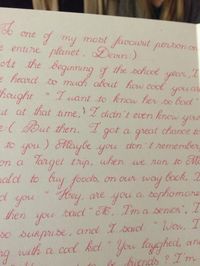 To one of my most favourist person on
e entire planet. Dearn:)
At the beginning of the school year, I
e heard so much about how cool you are
thought " I want to know her so bad
ut at that time, I didn't even know you
:( But then. I got a great chance to
to you) Maybe you don't remember,
on a Target trip, when we run to M
nald to buy foods, on our way back, I
d you " Hey, are you a sophomore
then you said " No, I'm a senior", I
so surprise, and I said " Wow, I
ng with a cool kid" You laughed, an
friends? I'm